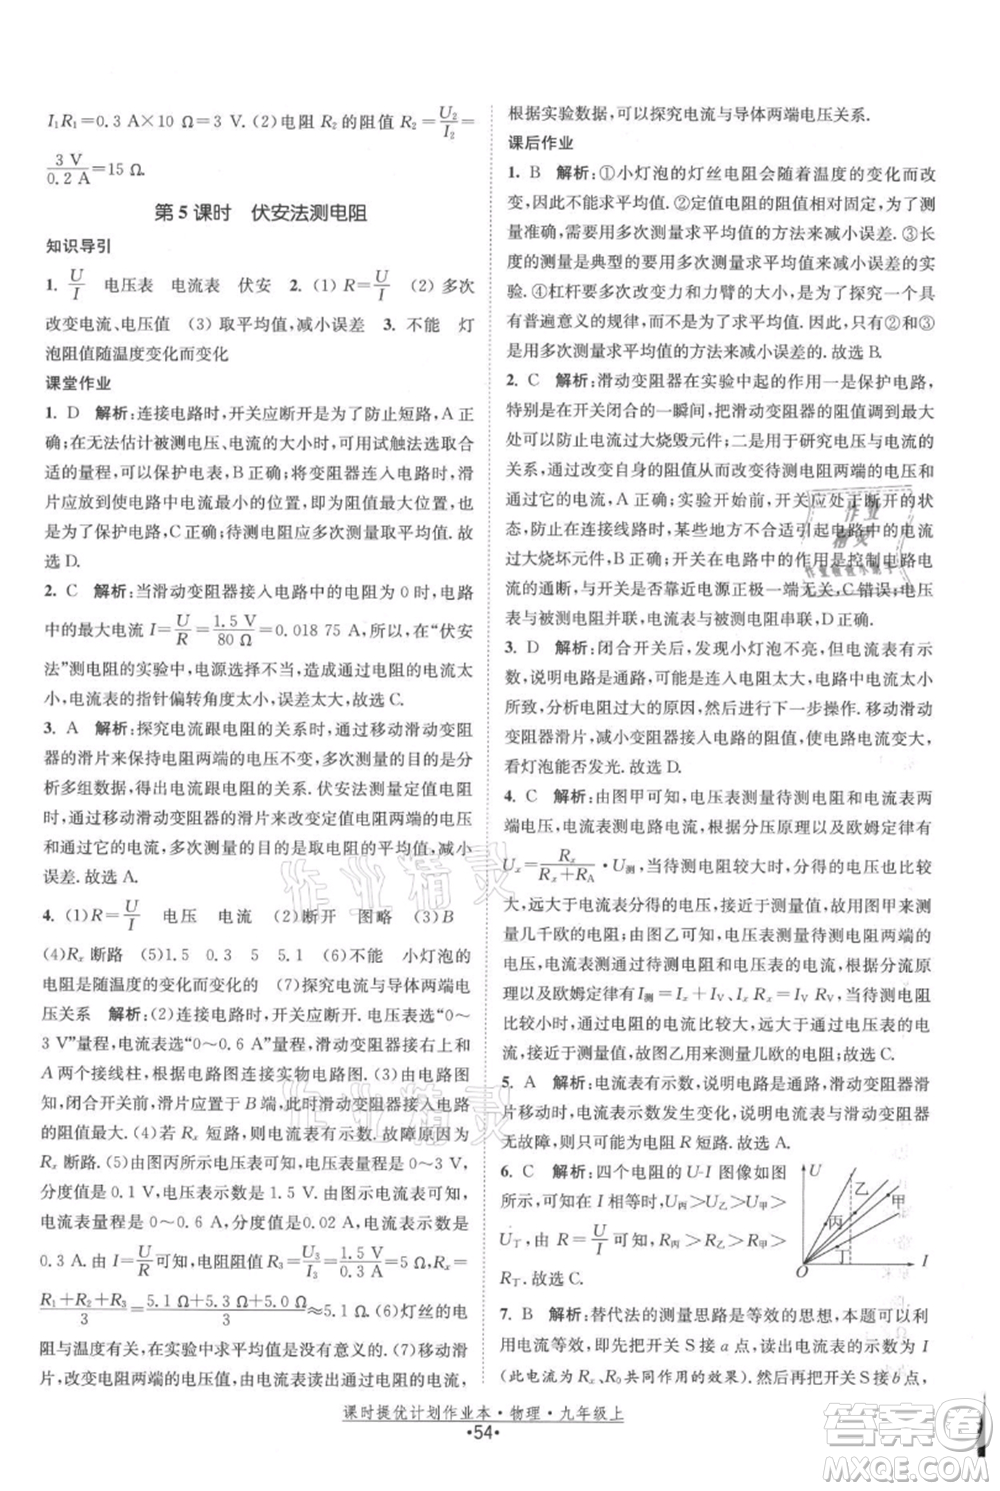 I₁R₁=0.3 A×10 Ω=3 V. (2)电阻 R₂ 的阻值 R₂=U₂/I₂=
3 V/0.2 A=15 Ω.
第 5 课时　伏安法测电阻
知识导引
1. U/I　电压表　电流表　伏安　2. (1) R=U/I　(2) 多次
改变电流、电压值　(3) 取平均值,减小误差　3. 不能　灯
泡阻值随温度变化而变化
课堂作业
1. D　解析:连接电路时,开关应断开是为了防止短路,A 正
确;在无法估计被测电压、电流的大小时,可用试触法选择合
适的量程,可以保护电表;B 正确;将变阻器连入电路时,滑
片应放到使电路中电流最小的位置,即阻值最大的位置,是
为了保护电路,C 正确;待测电阻应多次测量取平均值.
故选 D.
2. C　解析:滑动变阻器接入电路中的电阻为 0 时,电路
中的最大电流 I=U/R=1.5 V/80 Ω=0.018 75 A,所以,在“伏安
法”测电阻的实验中,电源选择不当,造成电路中的电流太
小,电流表的指针偏转角度太小,误差太大,故选 C.
3. A　解析:探究电流跟电阻的关系时,通过移动滑动变阻
器的滑片来控制电阻两端的电压不变,多次测量的目的是分
析多组数据,得出电流跟电阻的关系. 伏安法测电阻的实验
中,通过移动滑动变阻器的滑片来改变定值电阻两端的电压
和通过它的电流,多次测量电阻的平均值,是为了减小测量
误差. 故选 A.
4. (1)R=U/I　电压　电流　(2)断开　图略　(3)B
(4)Rₓ 断路　(5)1.5　0.3　5　5.1　(6)不能　小灯泡的
电阻随温度的变化而变化的　(7)探究电流与导体两端电
压关系　解析:(2)连接电路时,开关断开. 电压表使用“0～
3 V”量程,电流表选“0～0.6 A”量程,滑动变阻器按一上一下
A 两个接线柱,用笔画线代替导线,根据电路图连接实物电路.
(3)闭合开关前,滑片应处于 B 端,此时滑动变阻器接入电路
的阻值最大. (4)若 Rₓ 短路,则电流表有示数,Rₓ 断路,电流
表无示数. (5)由图丙知,电压表选用的量程是 0～3 V,
分度值是 0.1 V,电压表示数是 1.5 V. 电流表的量程是 0～0.6 A,
分度值是 0.02 A,电流表示数为
0.3 A. 由 I=U/R 可得,电阻阻值 R₃=U₃/I₃=1.5 V/0.3 A=5 Ω,Rₓ=
(R₁+R₂+R₃)/3=(5.1 Ω+5.3 Ω+5.0 Ω)/3≈5.1 Ω. (6)灯丝的电
阻与温度有关,在实验中求平均值没有意义. (7)移动滑动变阻器的滑
片时,改变电阻两端的电压,由电流表读出通过电阻的电流,
根据实验数据,可以探究电流与导体两端电压关系.
课后作业
1. B　解析:①小灯泡的灯丝电阻会随着温度的变化而变
化,因此不能用多次测量求平均值. ②定值电阻的阻值是不
变的,因此可以用多次测量求平均值的方法来减小误差. ③
长度的测量是典型的要多次测量求平均值来减小误差的实
验. ④杠杆要多次改变力和力臂的大小,是为了探究得出具有
普遍意义的规律,而不是为了求平均值. 所以,只有②和③
是用多次测量求平均值来减小误差的. 故选 B.
2. C　解析:滑动变阻器在实验中起的作用一个是保护电路,
特别是在开关闭合的一瞬间,把滑动变阻器的阻值调到最大
处可以防止电流过大烧毁元件;二是用于研究电压与电流的
关系,通过改变自身的阻值从而改变待测电阻两端的电压和
通过它的电流,A 正确. 实验开始前,开关应处于断开的状
态,以防在连接线路时,某些地方不合适引起电路中的电流
过大烧坏元件,B 正确;开关在电路中的作用是控制电路电
流的通断,与是否靠近电源正极一端无关,C 错误;电压
表与被测电阻并联,电流表与被测电阻串联,D 正确.
3. D　解析:闭合开关后,发现小灯泡不亮,但电流表有示
数,说明电路是通路,小灯泡不亮的原因可能是电路中电流太小,
所致,应进行下一步操作. 移动滑动
变阻器的滑片,减小变阻器接入电路中的阻值,观
看灯泡能否发光. 故选 D.
4. C　解析:由图甲可知,电压表测量待测电阻和电流表两
端电压,电流表测电路电流,根据分压原理以及欧姆定律有
Uₓ=Rₓ/(Rₓ+R_A)·U测,待测电阻比较大时,分得的电压也比较
大,电流表分得的电压较小,接近于测量值,所以图甲用来测
量几千欧的电阻;由图乙可知,电压表测量待测电阻两端的电
压,电流表测通过待测电阻和电压表的电流之和,根据并联
电路特点以及欧姆定律有 I测=Iₓ+I_V=Iₓ+U/R_V,待测电阻
比较小时,通过的电流比较大,电压表的电流较小,接近于测
量值,所以图乙用来测量几欧的电阻. 故选 C.
5. A　解析:电流表有示数,说明电路是通路,滑动变阻器滑
片移动时,电流表示数发生变化,说明滑动变阻器
无故障,则可能是电阻 R 短路. 故选 A.
6. C　解析:四个电阻的 U-I 图像如图
所示,可知在 I 相等时,U丙>U乙>U甲>
U丁,由 R=U/I 可知,R丙>R乙>R甲>
R丁. 故选 C.
U 丙 乙 甲 丁 O I
7. B　解析:替代法的测量思路是等效的思想,本题可以利
用电流等效. 首先将开关 S 接 a 点,读出电流表示数为 I
(此电流是 Rₓ、R₀共同作用的效果). 再将开关 S 接 b 点后,
课时提优计划作业本·物理·九年级上
·54·
作业精灵
作业精灵
作业
精灵
答案圈
MXQE.COM